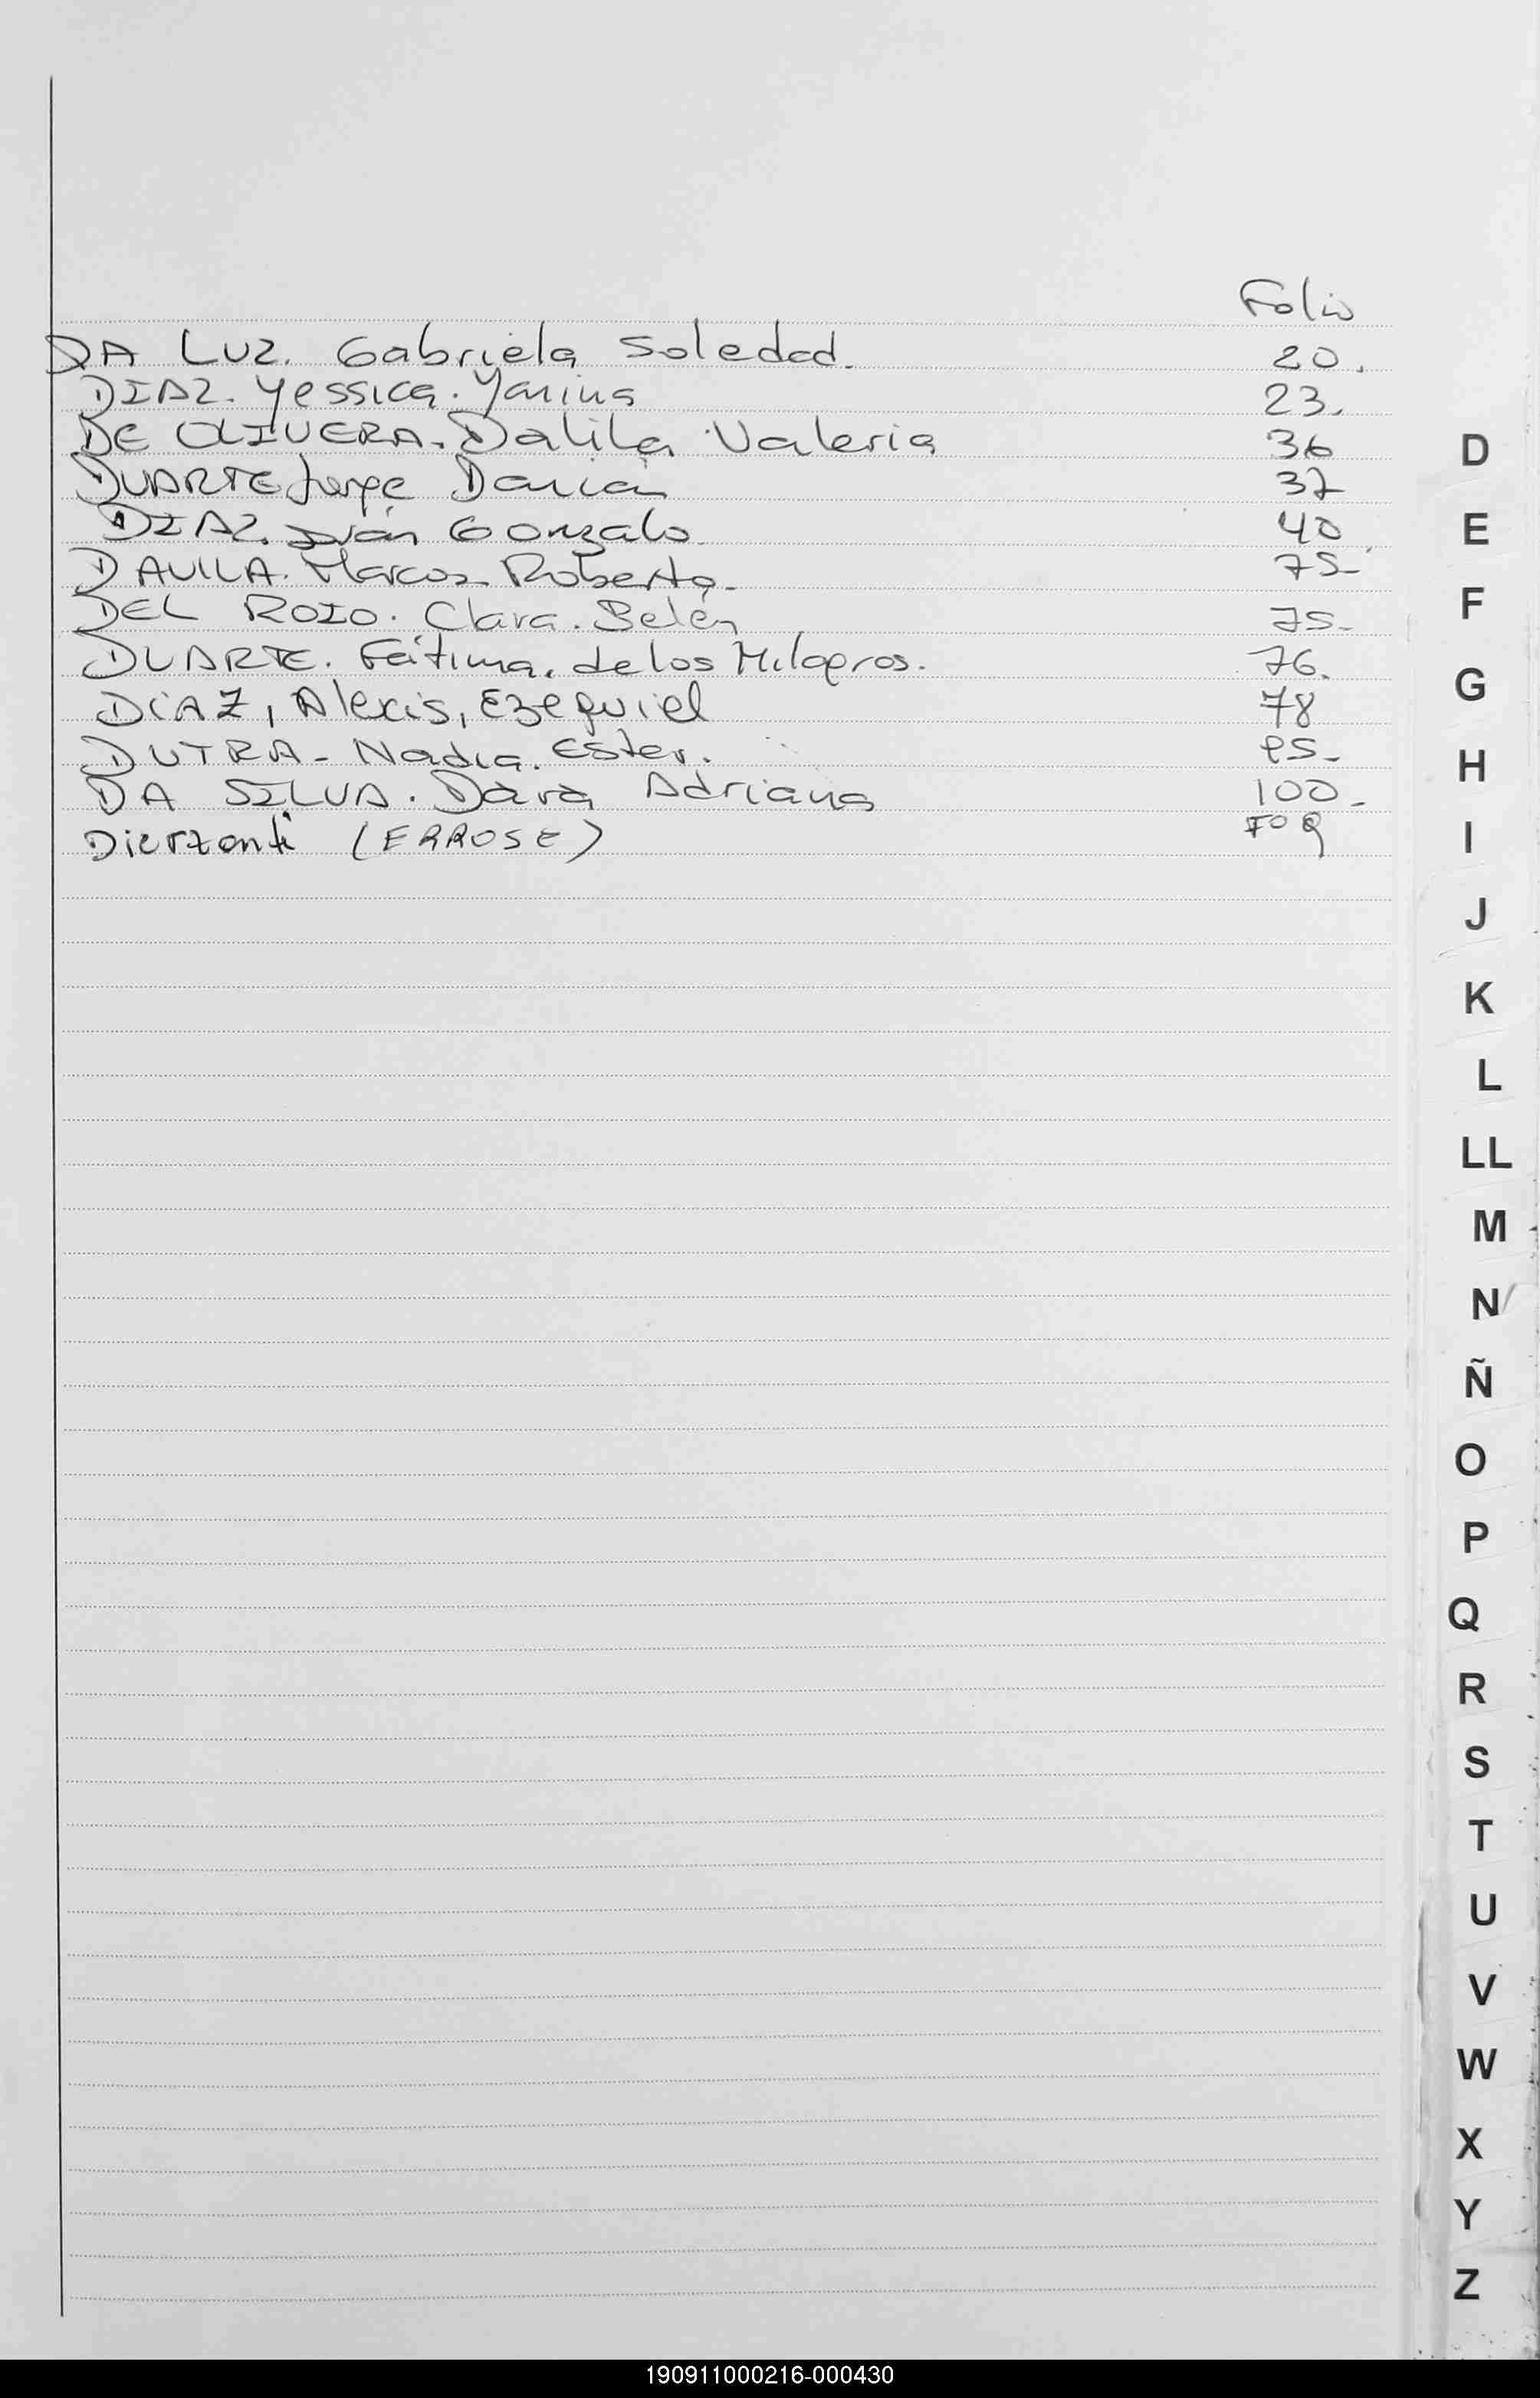 Folio
DA LUZ. Gabriela Soledad. 20.
DIAZ. Yessica. Yanina 23.
DE OLIVERA. Dalila Valeria 36
DUARTE Jorge Darian 37
DIAZ. Iván Gonzalo. 40
DAVILA. Marcos Roberto. 75-
DEL ROZO. Clara. Belén 75-
DUARTE. Fátima. de los Milagros. 76.
DIAZ, Alexis, Ezequiel 78
DUTRA - Nadia. Ester. 95-
DA SILVA. Dara Adriana 100-
(ERROSE) Fº
D
E
F
G
H
I
J
K
L
LL
M
N
Ñ
O
P
Q
R
S
T
U
V
W
X
Y
Z
190911000216-000430